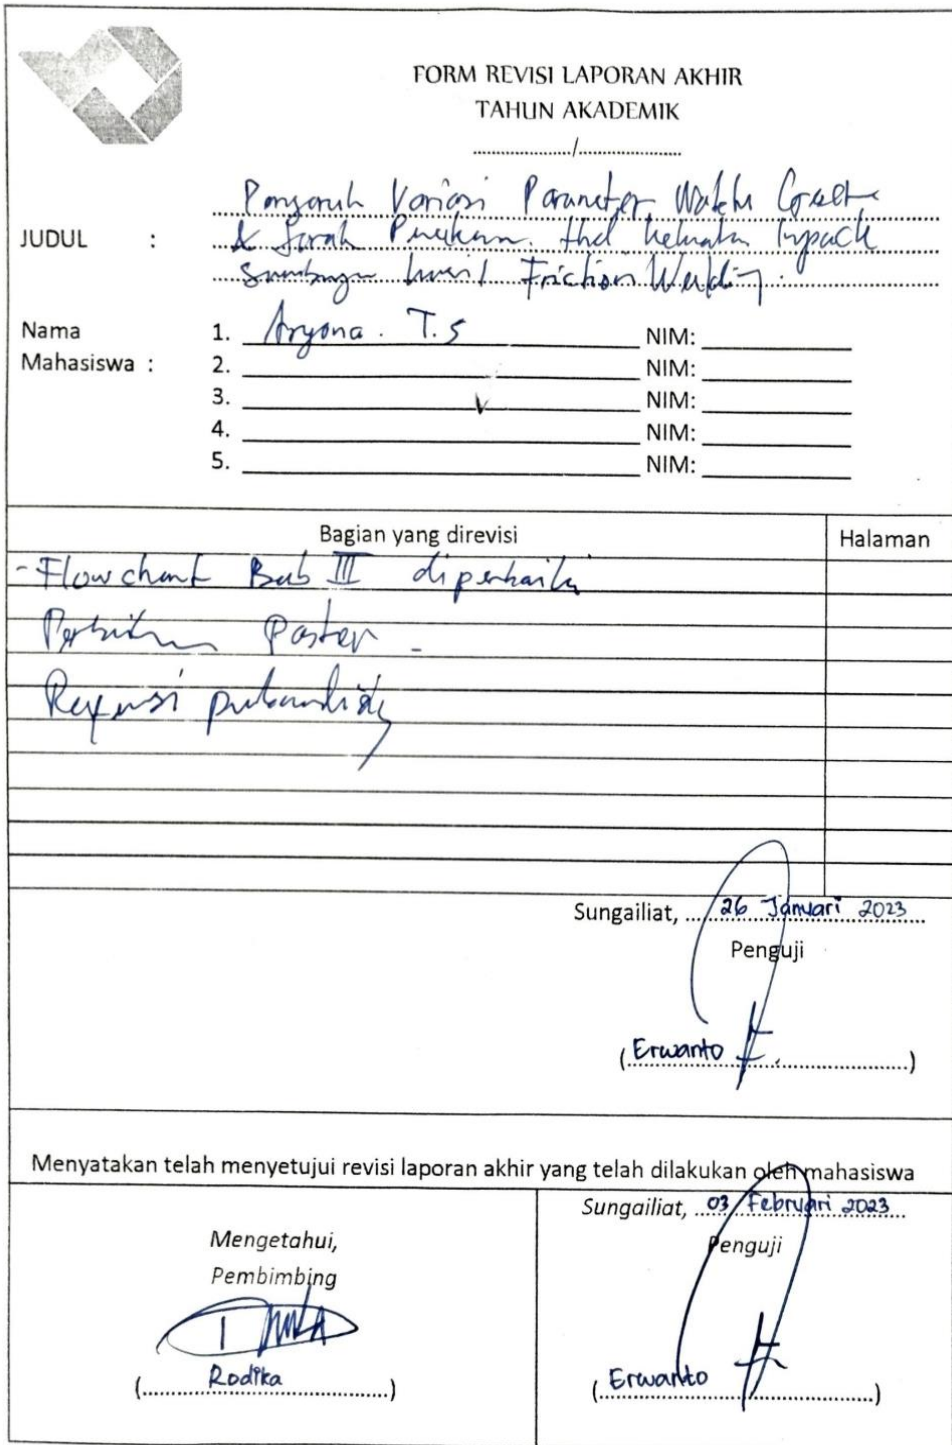 FORM REVISI LAPORAN AKHIR
TAHUN AKADEMIK
...................../......................
JUDUL :
Pengaruh Variasi Parameter Waktu Gesek
& Jarak Penekanan thd kekuatan Impack
Sambungan Friction Welding.
Nama Mahasiswa :
1. Aryona. T.S NIM:
2. NIM:
3. NIM:
4. NIM:
5. NIM:
Bagian yang direvisi Halaman
- Flowchart Bab III diperbaiki
Poster -
Referensi
Sungailiat, 26 Januari 2023
Penguji
(Erwanto)
Menyatakan telah menyetujui revisi laporan akhir yang telah dilakukan oleh mahasiswa
Mengetahui,
Pembimbing
(Rodika)
Sungailiat, 03 Februari 2023
Penguji
(Erwanto)